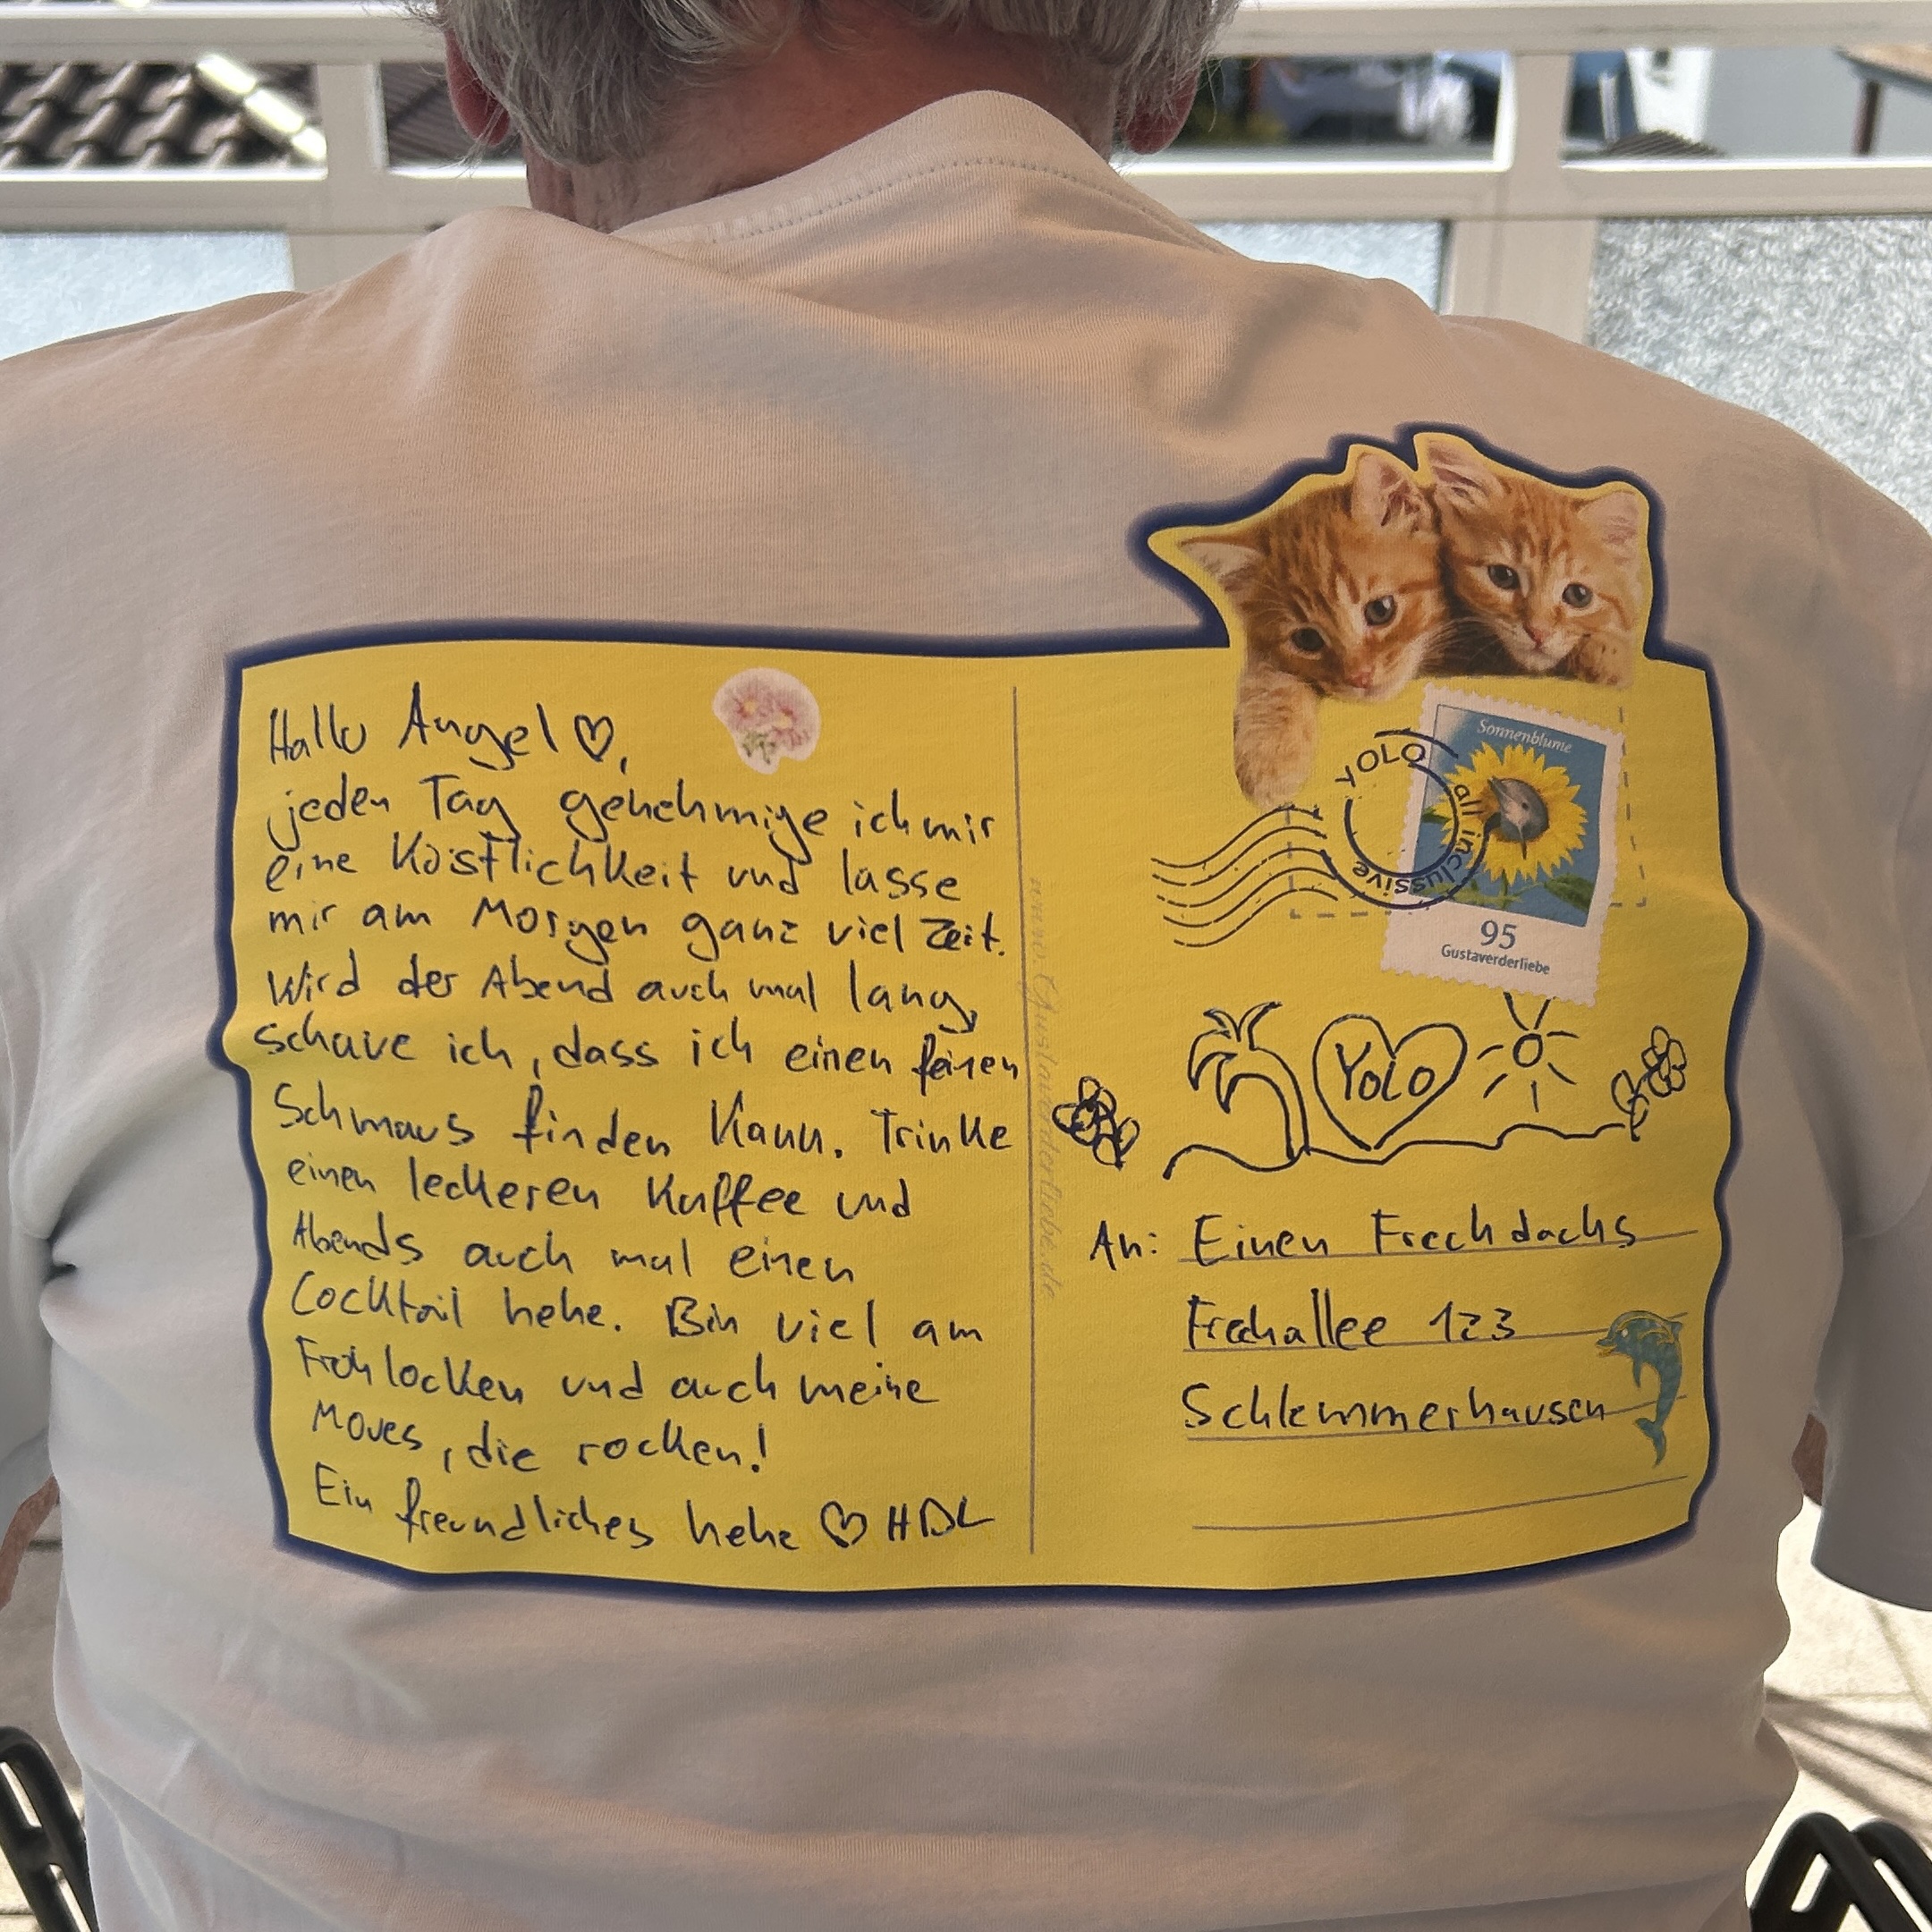 Hallo Angel ♡,
jeden Tag genehmige ich mir
eine Köstlichkeit und lasse
mir am Morgen ganz viel Zeit.
Wird der Abend auch mal lang,
schaue ich, dass ich einen feinen
Schmaus finden kann. Trinke
einen leckeren Kaffee und
Abends auch mal einen
Cocktail hehe. Bin viel am
Frohlocken und auch meine
Moves, die rocken!
Ein freundliches hehe ♡ HDL
www.Gustaverderliebe.de
YOLO
all inclussive
Sonnenblume
95
Gustaverderliebe
YOLO
An: Einen Frechdachs
Frechallee 123
Schlemmerhausen